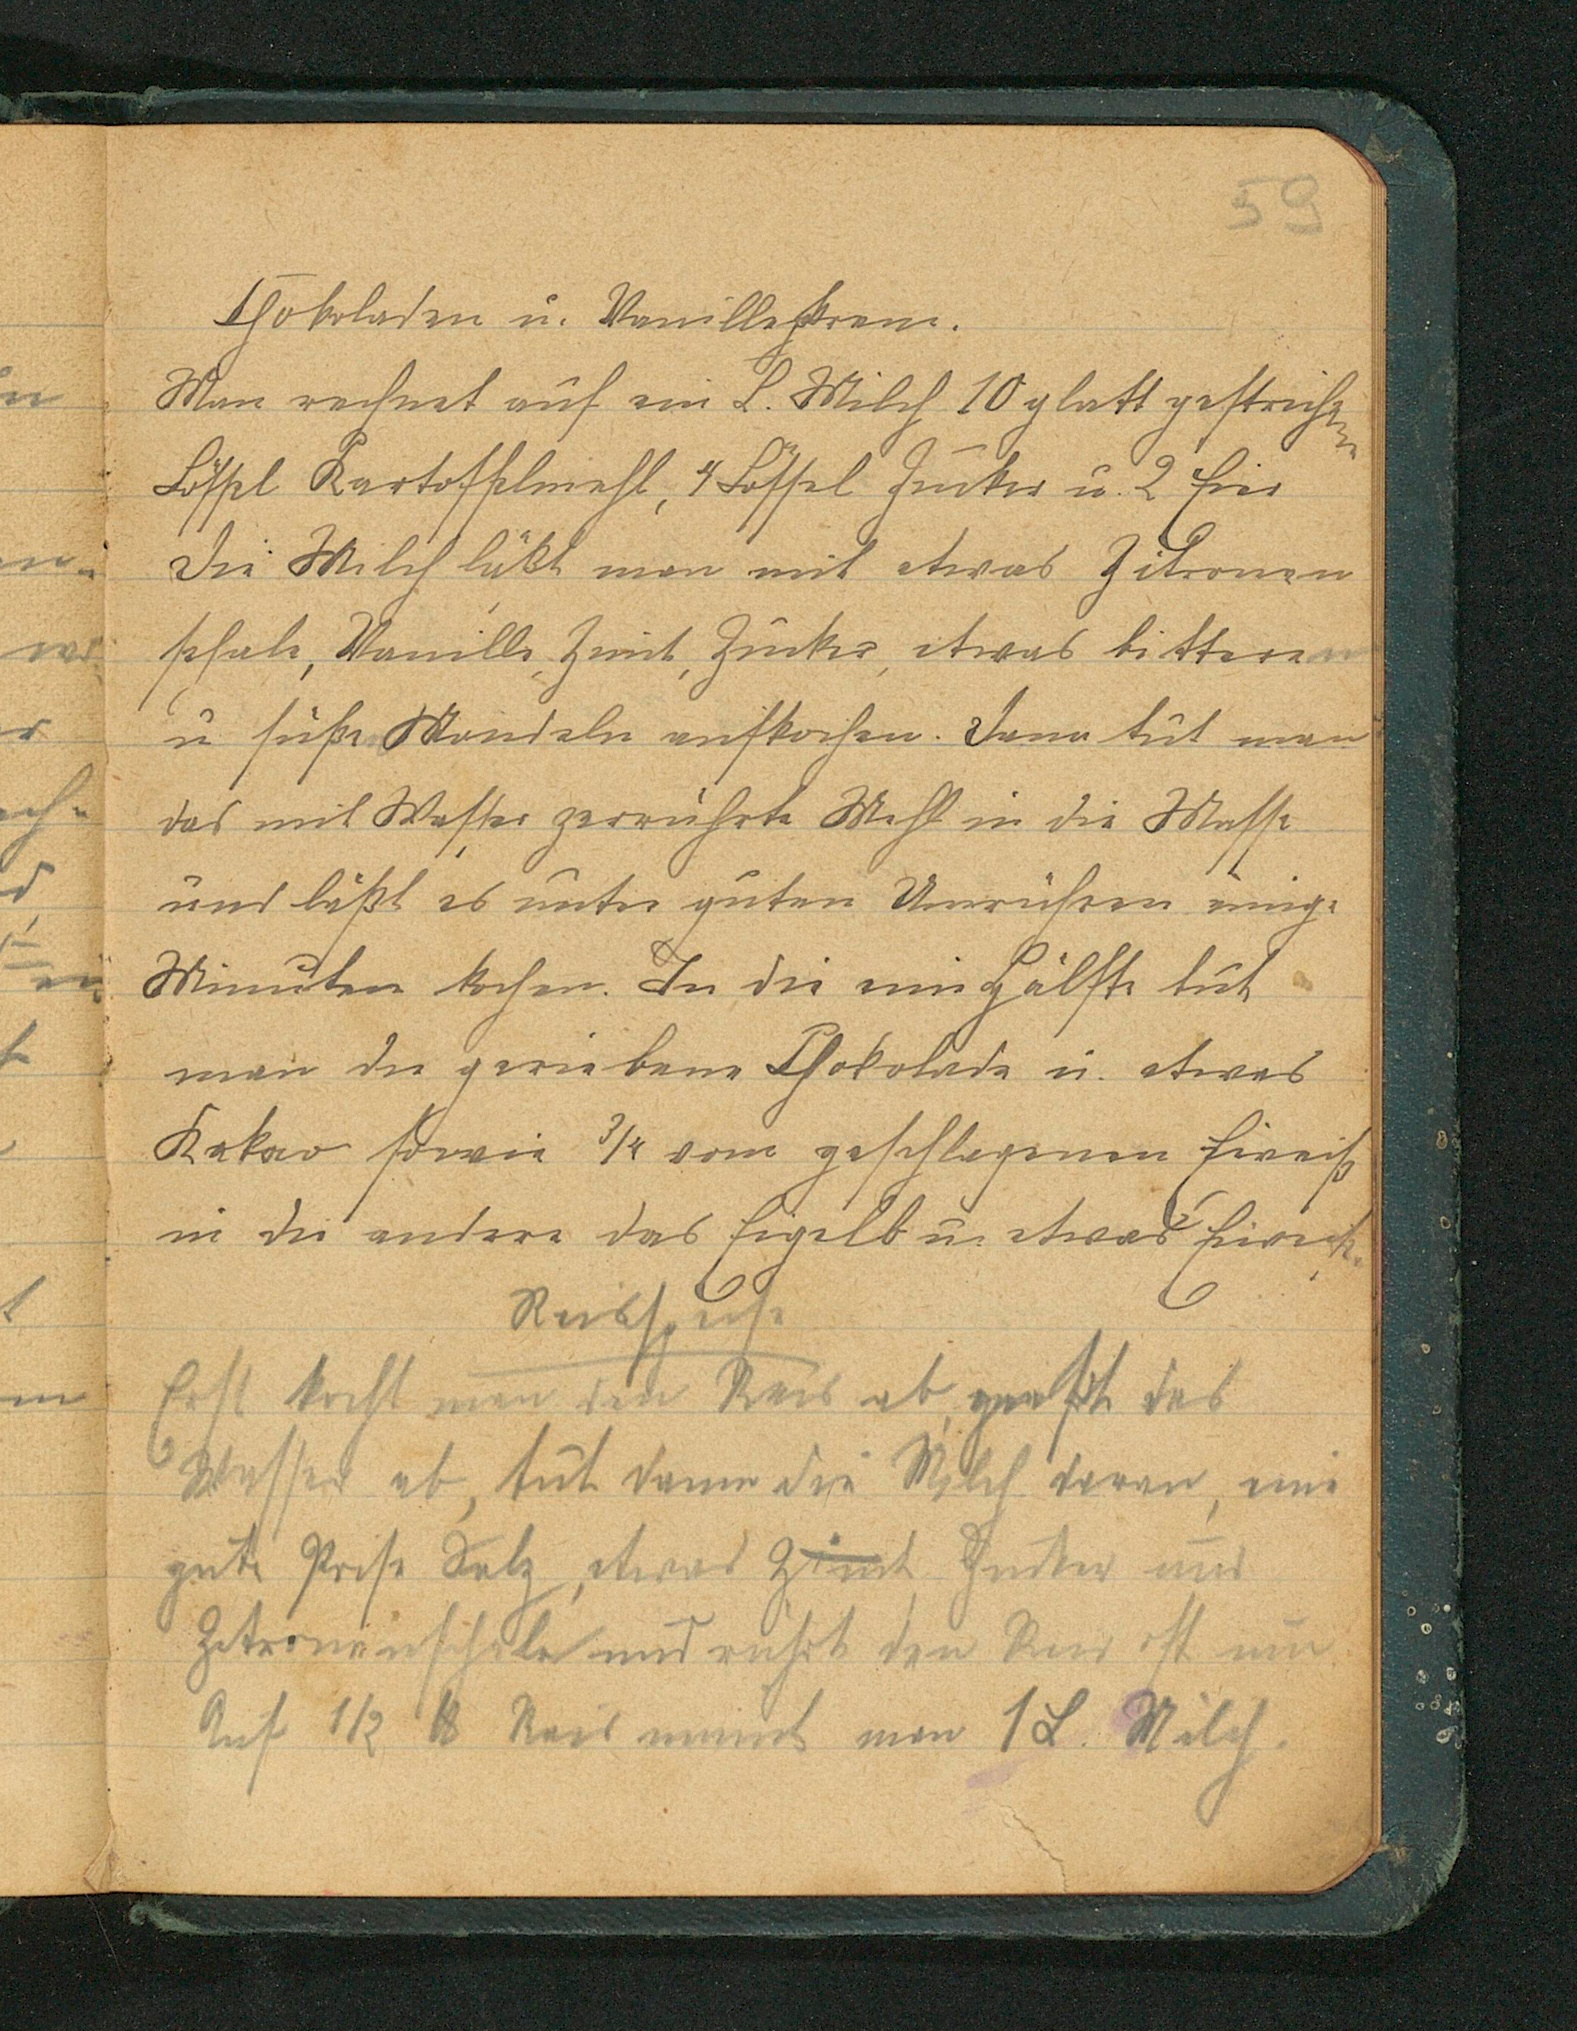 59
Schokoladen u. Vanillekrem.
Man rechnet auf ein L. Milch 10 glatt gestrichene
Löffel Kartoffelmehl, 4 Löffel Zucker u. 2 Eier
Die Milch läßt man mit etwas Zitronen
schale, Vanille, Zimt, Zucker, etwas bitteren
u süße Mandeln aufkochen. Dann tut man
das mit Wasser zerrührte Mehl in die Masse
und läßt es unter guten Umrühren einige
Minuten kochen. In die eine Hälfte tut
man die geriebene Schokolade u. etwas
Kakao sowie 3/4 vom geschlagenen Eiweiß
in die andere das Eigelb u. etwas Eiweiß.
Reisspeise
Erst kocht man den Reis ab, das
Wasser ab, tut dann die Milch daran, eine
gute Prise Salz, etwas Zimt Zucker und
Zitronenschale und rührt den Reis oft um
Auf 1/2 ℔ Reis nimmt man 1 L. Milch.